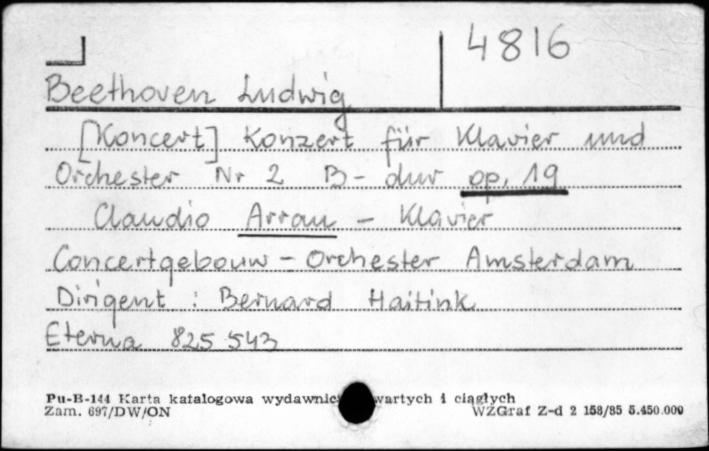 4816
Beethoven Ludwig
[Koncert] Konzert für Klavier und
Orchester Nr 2 B-dur op. 19
Claudio Arrau - Klavier
Concertgebouw - Orchester Amsterdam
Dirigent : Bernard Haitink
Eterna 825 543
Pu-B-144 Karta katalogowa wydawnic wartych i ciągłych
Zam. 697/DW/ON WZGraf Z-d 2 158/85 5.450.000